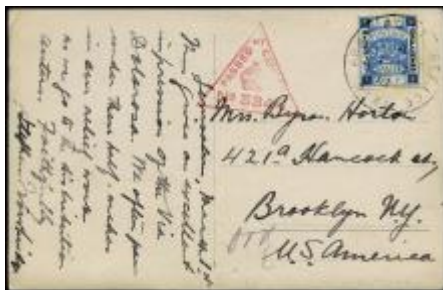 Jerusalem, March 1st
This gives an excellent
impression of the Via
Dolorosa. We often pass
under this half-arch
in our relief work
as we go to the distribution
centers. Faithfully
PASSED
Mrs. Byron Horton
421a Hancock st,
Brooklyn N.Y.
U.S. America